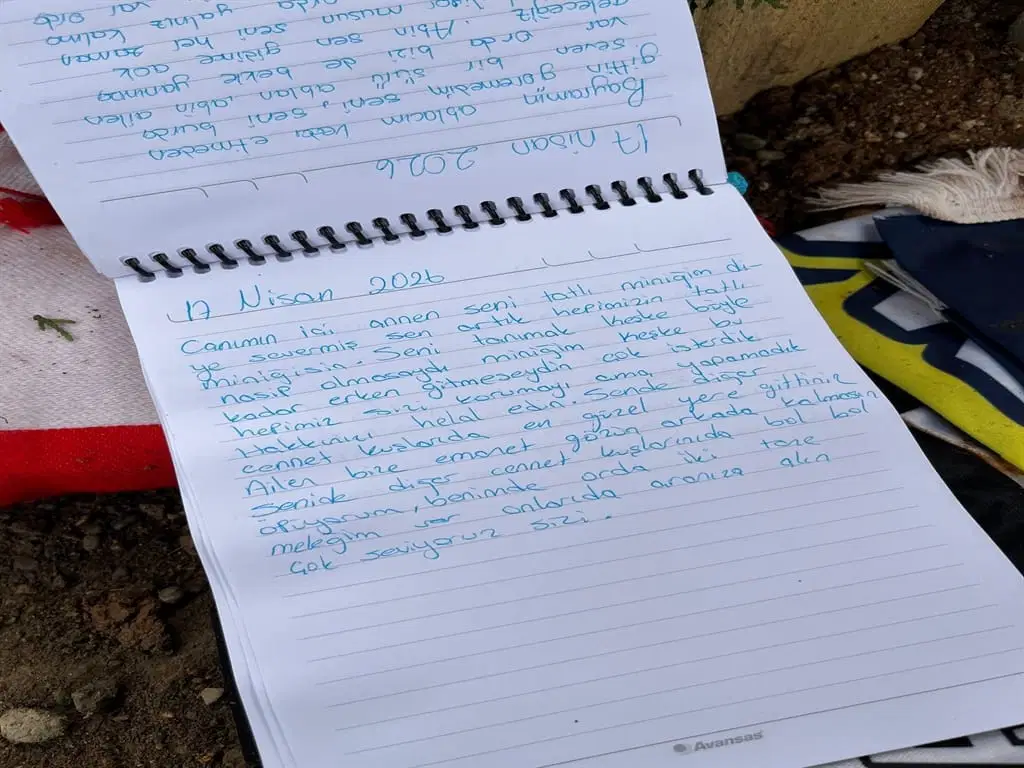 17 Nisan 2026
Bayramın ablacım veda etmeden
gittin göremedim seni, seni burda
seven bir sürü ablan, abin, ailen
var orda bizi de bekle yanınıza
geleceğiz. Abin sen gidişine çok
musun seni her zaman
yalnız kalma
17 Nisan 2026
Canımın içi annen seni tatlı miniğim di-
ye severmiş sen artık hepimizin tatlı
miniğisin. Seni tanımak keşke böyle
nasip olmasaydı miniğim keşke bu
kadar erken gitmeseydin çok isterdik
hepimiz sizi korumayı ama yapamadık
Hakkınızı helal edin. Sende diğer
cennet kuşlarıda en güzel yere gittiniz
Ailen bize emanet gözün arkada kalmasın
Senide diğer cennet kuşlarınıda bol bol
öpüyorum, benimde orda iki taze
meleğim var onlarıda aranıza alın
Çok seviyoruz sizi.
Avansas